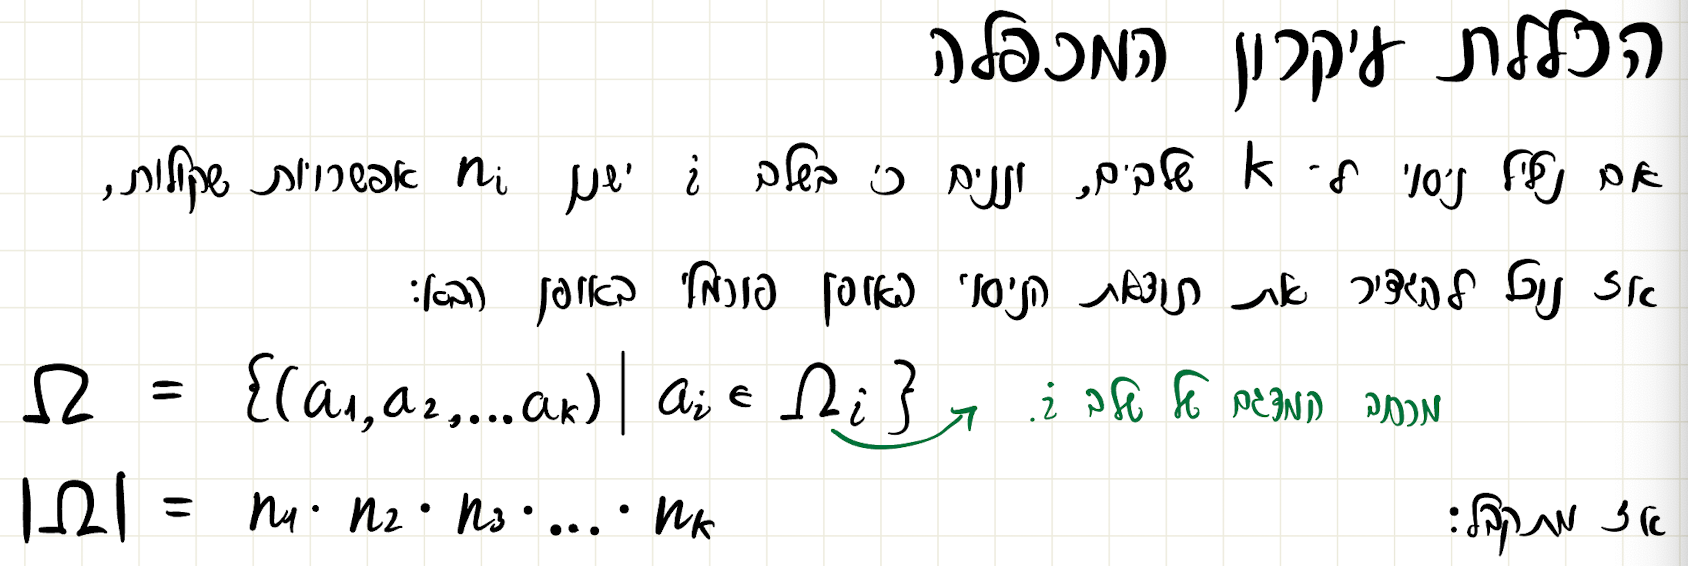 הכללת עיקרון המכפלה
אם נפצל ניסוי ל- k שלבים, ונניח כי בשלב i ישנן nᵢ אפשרויות שקולות,
אז נוכל להגדיר את תוצאת הניסוי באופן פורמלי באופן הבא:
Ω = {(a₁, a₂, ... aₖ) | aᵢ ∈ Ωᵢ} מרחב המדגם של שלב i.
אז מתקבל: |Ω| = n₁ · n₂ · n₃ · ... · nₖ